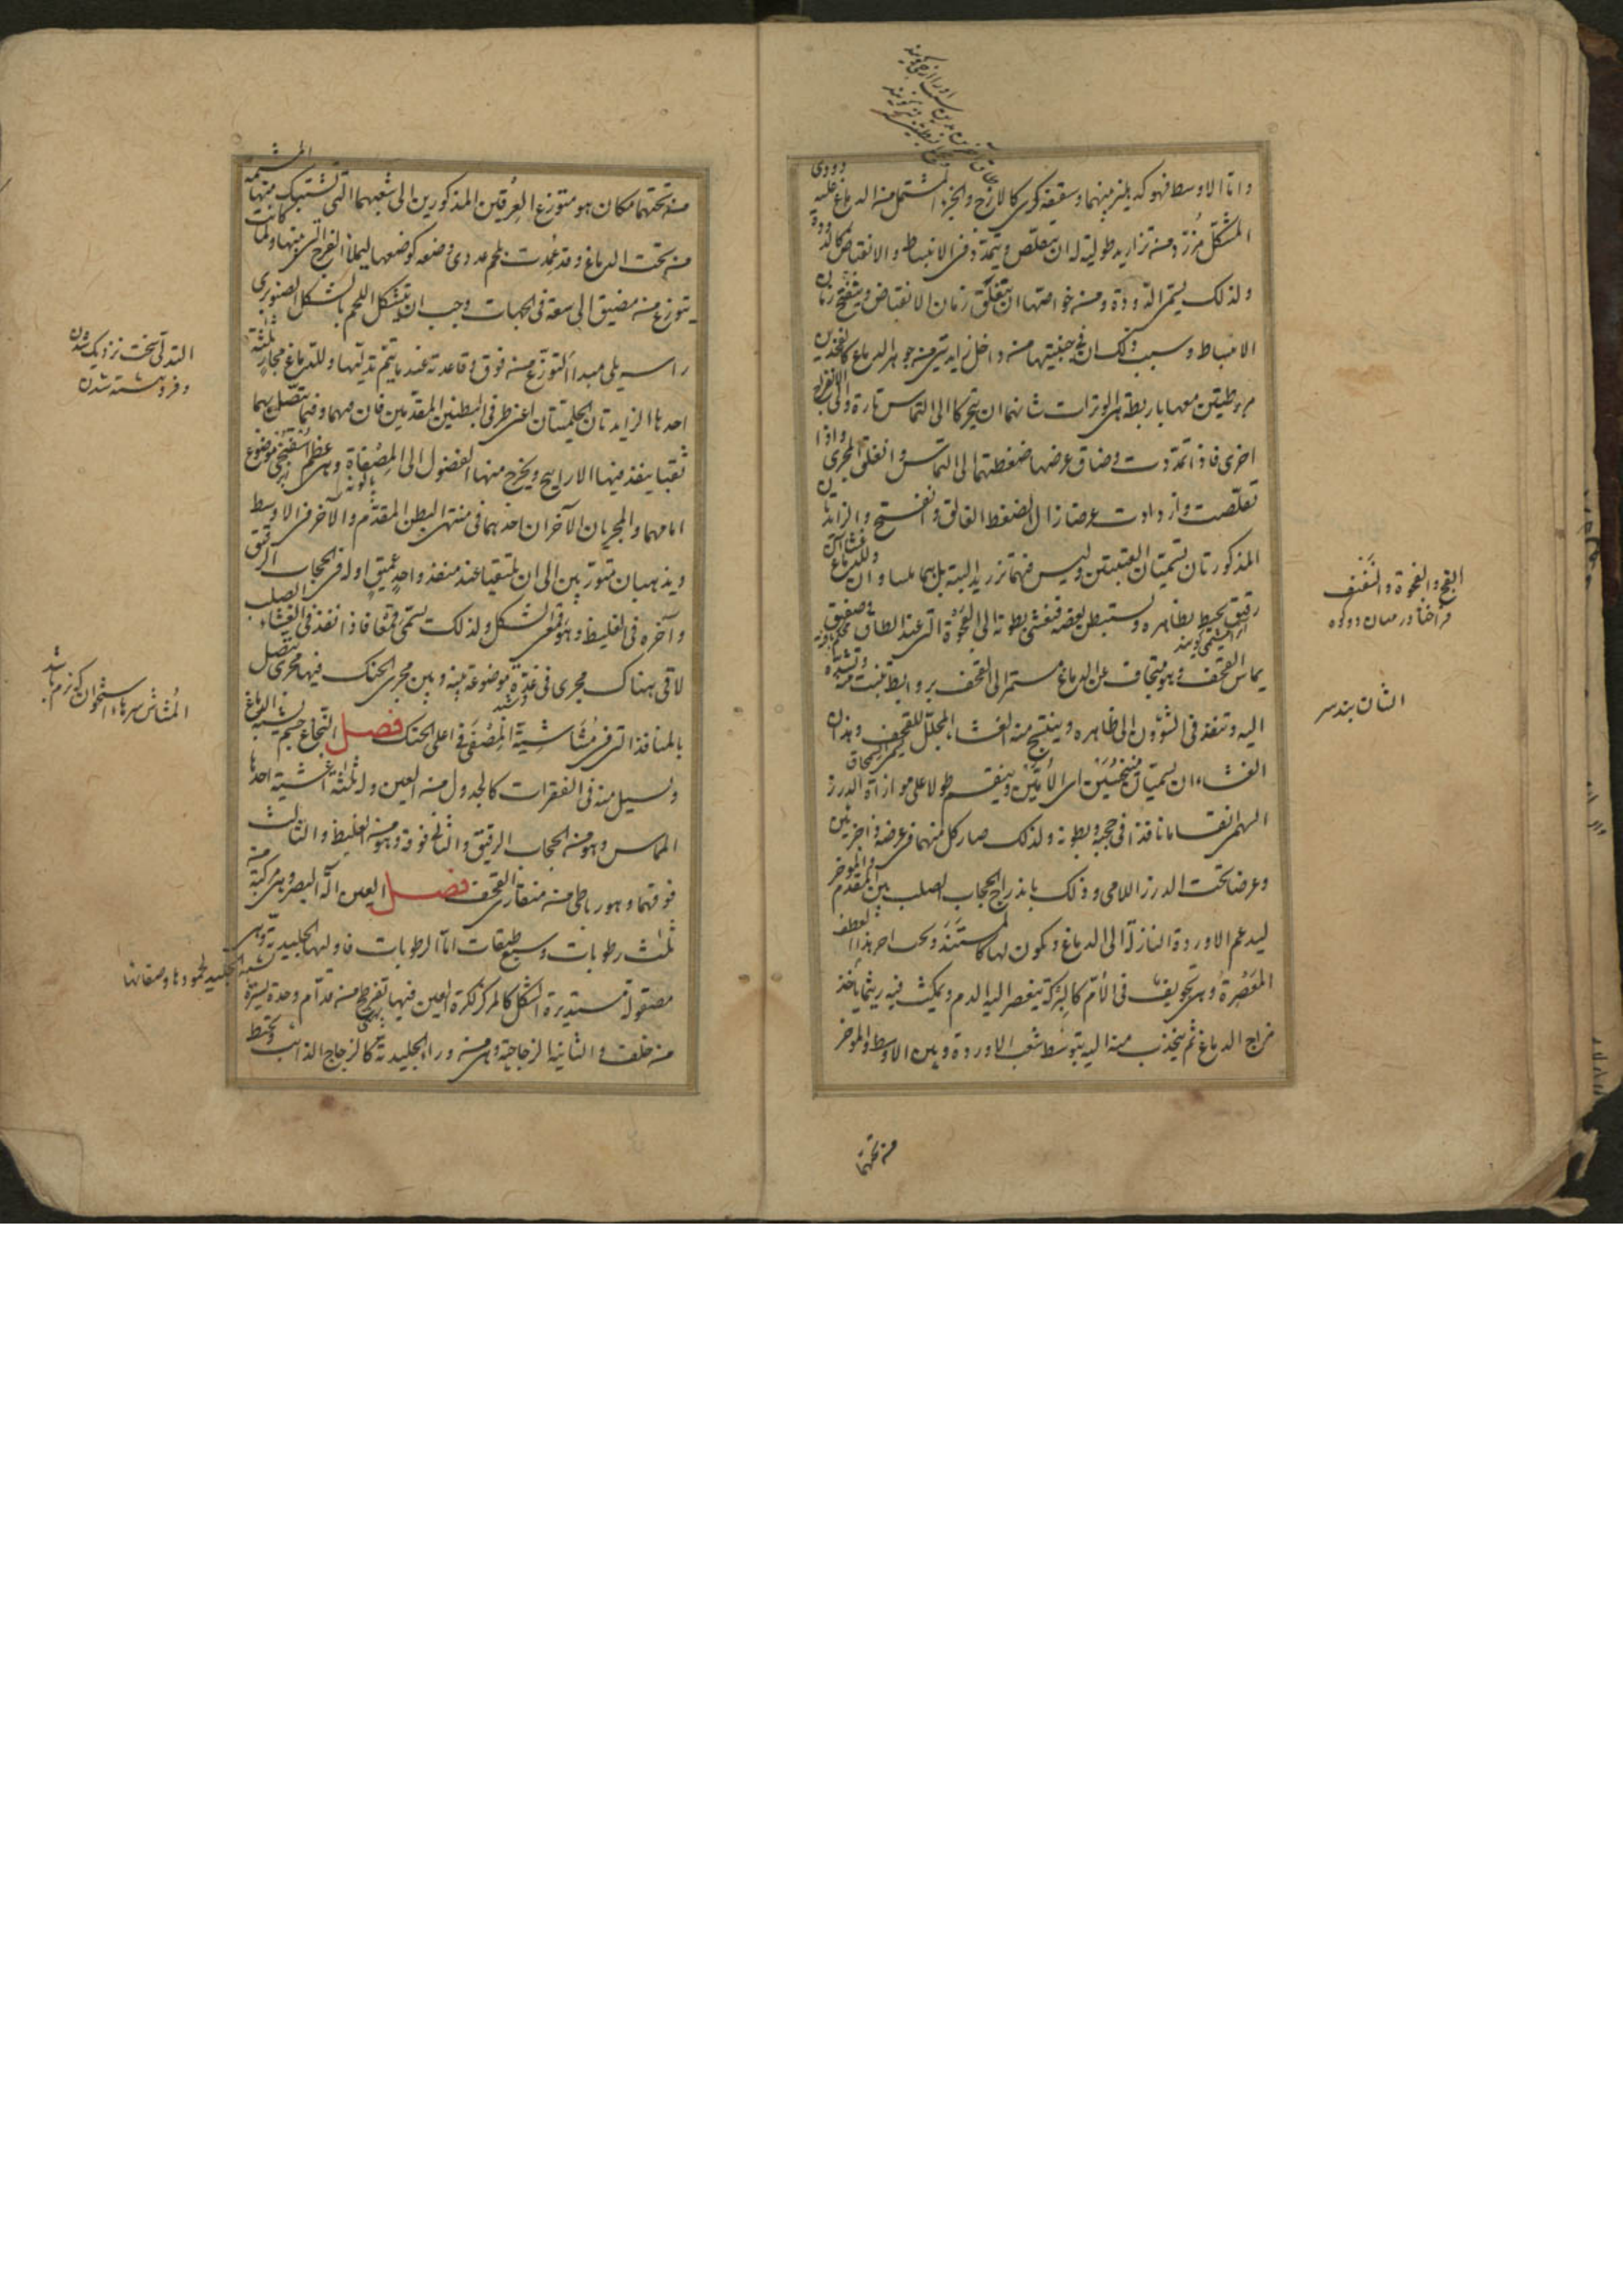 واما الاوسط فهو كدهليز بينهما وسقفه كرى كالازج والجزء المشتمل من الدماغ عليه
المشكل مزرد منه تزاريد طولية له ان يتقلص ويتمدد فى الانبساط والانقباض كالدودة
ولذلك يسمى الدودة ومن خواصتها ان يتغلق زمان الانقباض وينفتح زمان
الانبساط وسبب ذلك ان فى جنبيتيها من داخل زايدتين من جوهر الدماغ كالفخذين
مربوطتين معها باربطة هى الوترات شانهما ان يتحركا الى التماس تارة والى الانفراج
اخرى فاذا تمددت وضاق عرضها ضغطتهما الى التماس وانغلق المجرى واذا
تقلصت وازدادت عرضا زال الضغط الغالق وانفتح والزايدتان
المذكورتان تسميان العنبتين وليس فيهما تزريد البتة بل هما ملساوان وللدماغ غشاآن
رقيق يحيط بظاهره ويستبطن بعضه فيغشى بطونه الى الفجوة التى عند الطاق وصفيق
يماس القحف وهو متجاف عن الدماغ مستمر الى القحف بروابط تنبت منه وتشده
اليه وتنفذ فى الشؤون الى ظاهره وينتسج منه الغشاء المجلل للقحف وهذان
الغشاءان يسميان منجنسين اى الاُمّين وينقسم طولا على موازاة الدرز
السهمى انقساما نافذا فى حجبه وبطونه ولذلك صار كل منهما فى عرضه ذا جزئين
وعرضا تحت الدرز اللامى وذلك باندراج الحجاب الصلب بين المقدم والموخر
ليدعم الاوردة النازلة الى الدماغ ويكون لها كالمستند وتحت اخر هذا العطف
المعصرة وهى تجويف فى الاُم كالبركة ينعصر اليه الدم ويمكث فيه ريثما ياخذ
مزاج الدماغ ثم ينجذب منه اليه بتوسط شعب الاوردة وبين الاوسط والموخر
من تحتهما
الفج والفجوة والنفنف
فراخنا در ميان دو كوه
الشان بند سر
من تحتهما مكان هو متوزع العرقين المذكورين الى شعبهما التى تنتسبك منتهاها المشيمة
من تحت الدماغ وقد عُمدت بلحم غددى وضعه كوضعها ليملأ الفرج التى بينها ولما كانت
تتوزع من مضيق الى سعة فى الجهات وجب ان يتشكل اللحم بالشكل الصنوبرى
راسه يلى مبدأ التوزع من فوق وقاعدته عند ما يتم تدليها وللدماغ مجارٍ ثلثة
احدها الزايدتان الحلميتان اعنى طرفى البطنين المقدمين فان فيهما وفيما يتصل بهما
ثقبا ينفذ فيها الارايح ويخرج منها الفضول الى المصفاة وهى عظم اسفنجى موضوع
امامهما والمجريان الآخران احدهما فى منتهى البطن المقدم والآخر فى الاوسط
ويذهبان متوربين الى ان يلتقيا عند منفذ واحد عميق اوله فى الحجاب الرقيق
وآخره فى الغليظ وهو قمعى الشكل ولذلك يسمى قمعا فاذا نفذ فى الغشاء الصلب
لاقى هناك مجرى فى غدة موضوعة بينه وبين مجرى الحنك فيها مجرى يتصل
بالمنافذ التى فى مُشاشية المصفى فى اعلى الحنك فصل النخاع جسم يشبه الدماغ
ويسيل منه فى الفقرات كالجدول من العين وله ثلثة اغشية احدها
المماس وهو من الحجاب الرقيق والثانى فوقه وهو من الغليظ والثالث
فوقهما وهو رباطى من منقارى القحف فصل العين آلة البصر وهى مركبة من
ثلث رطوبات وسبع طبقات اما الرطوبات فاولها الجليدية وهى
مصقولة مستديرة الشكل كالمركز لكرة العين فيها تفرطح من قدام وحدة يسيرة
من خلف والثانية الزجاجية وهى من وراء الجليدية كالزجاج الذائب وتحيط
التدلى سخت نزديك شدن
وفروهشته شدن
المُشاش سرهاء استخوان كه نرم باشد
شبه الجليد لجمودها وصقالتها